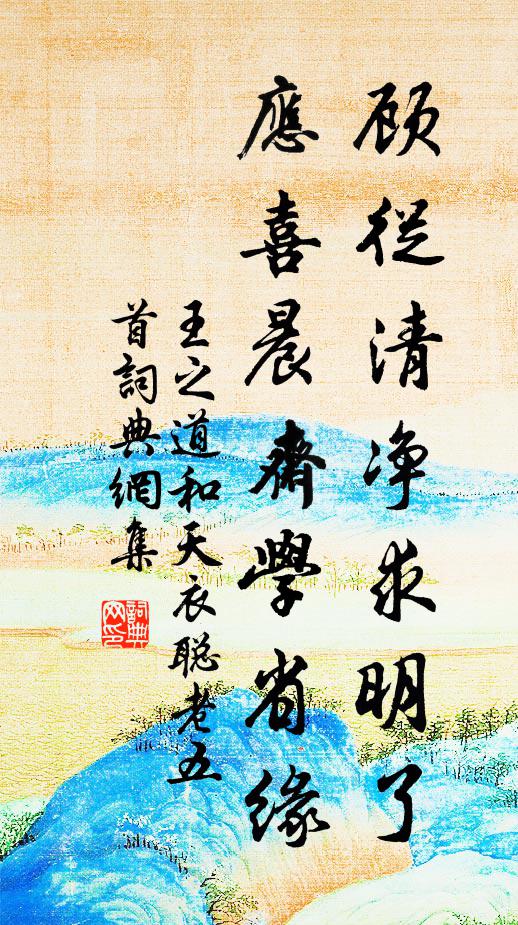 顾從清净求明了
應喜晨齋學省緣
王之道和天衣聪老五
首詞典網集
詞典网印